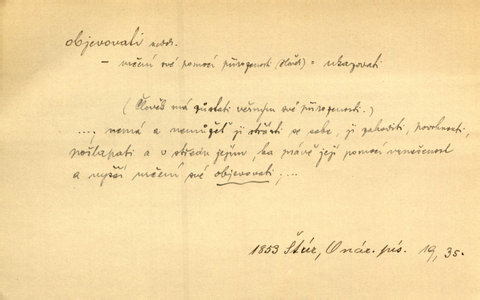 objevovati nedok.
— určení své pomocí přirozenosti (člověk) = ukazovati
(Člověk má zůstati věrným své přirozenosti.)
..., nemá a nemůžeť ji strásti se sebe, ji zahoditi, povrhnouti,
pošlapati a o středu jejím, ba právě její pomocí vznešenost
a vyšší určení své objevovati; ...
1853 Štúr, O nár. pís. 19, 35.